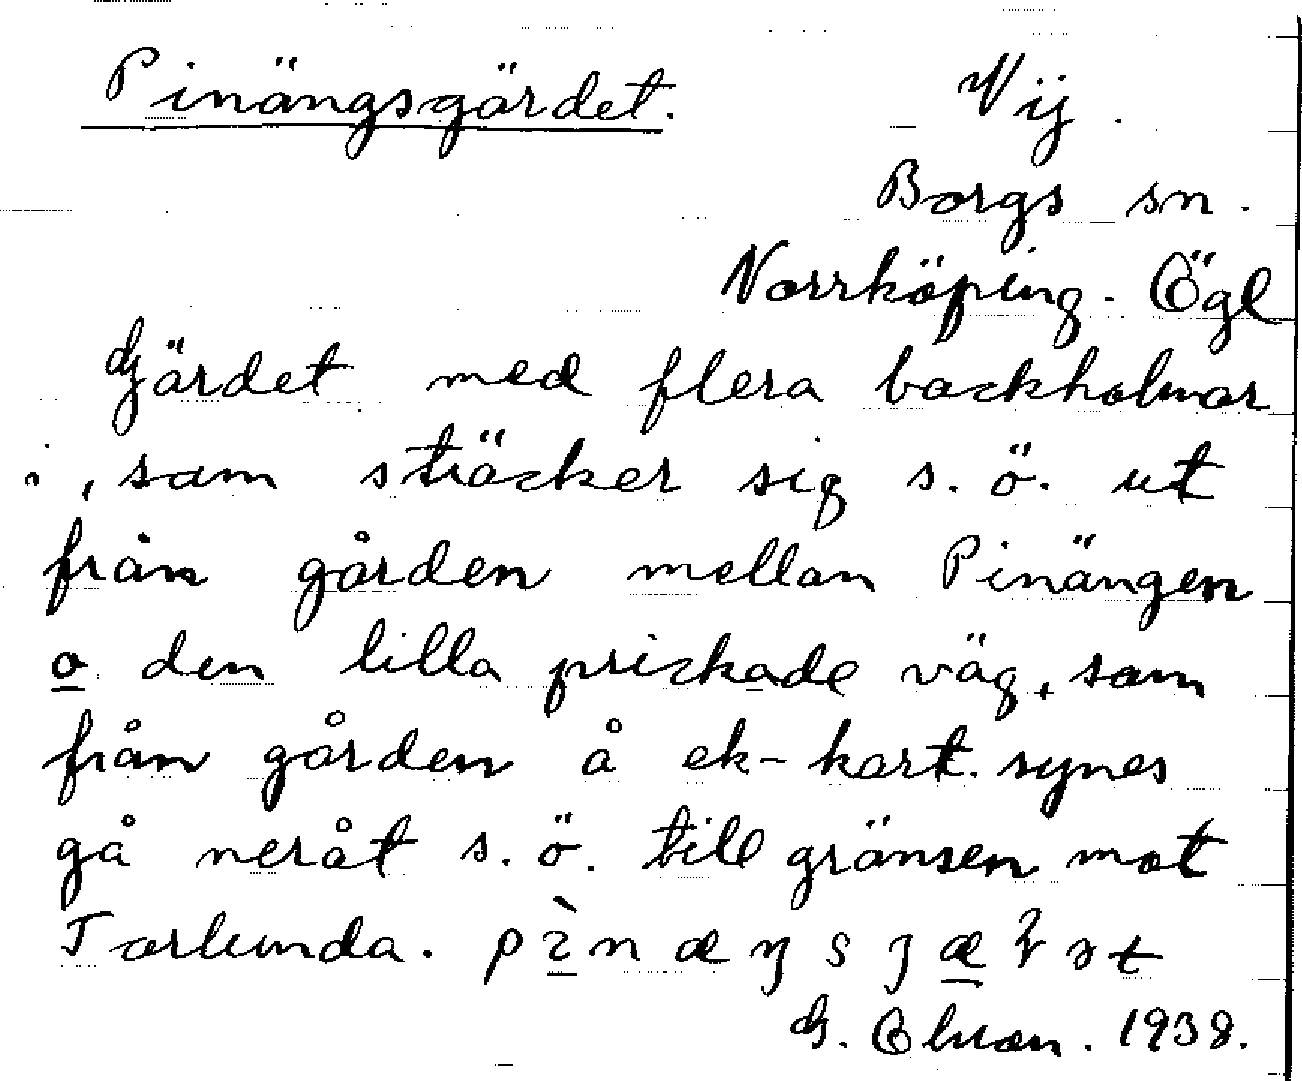 Pinängsgärdet. Vij.
Borgs sn.
Norrköping. Ögl
Gärdet med flera backholmar
i, som sträcker sig s. ö. ut
från gården mellan Pinängen
o den lilla prickade väg, som
från gården å ek-kart. synes
gå neråt s. ö. till gränsen mot
Torlunda.
G. 1938.